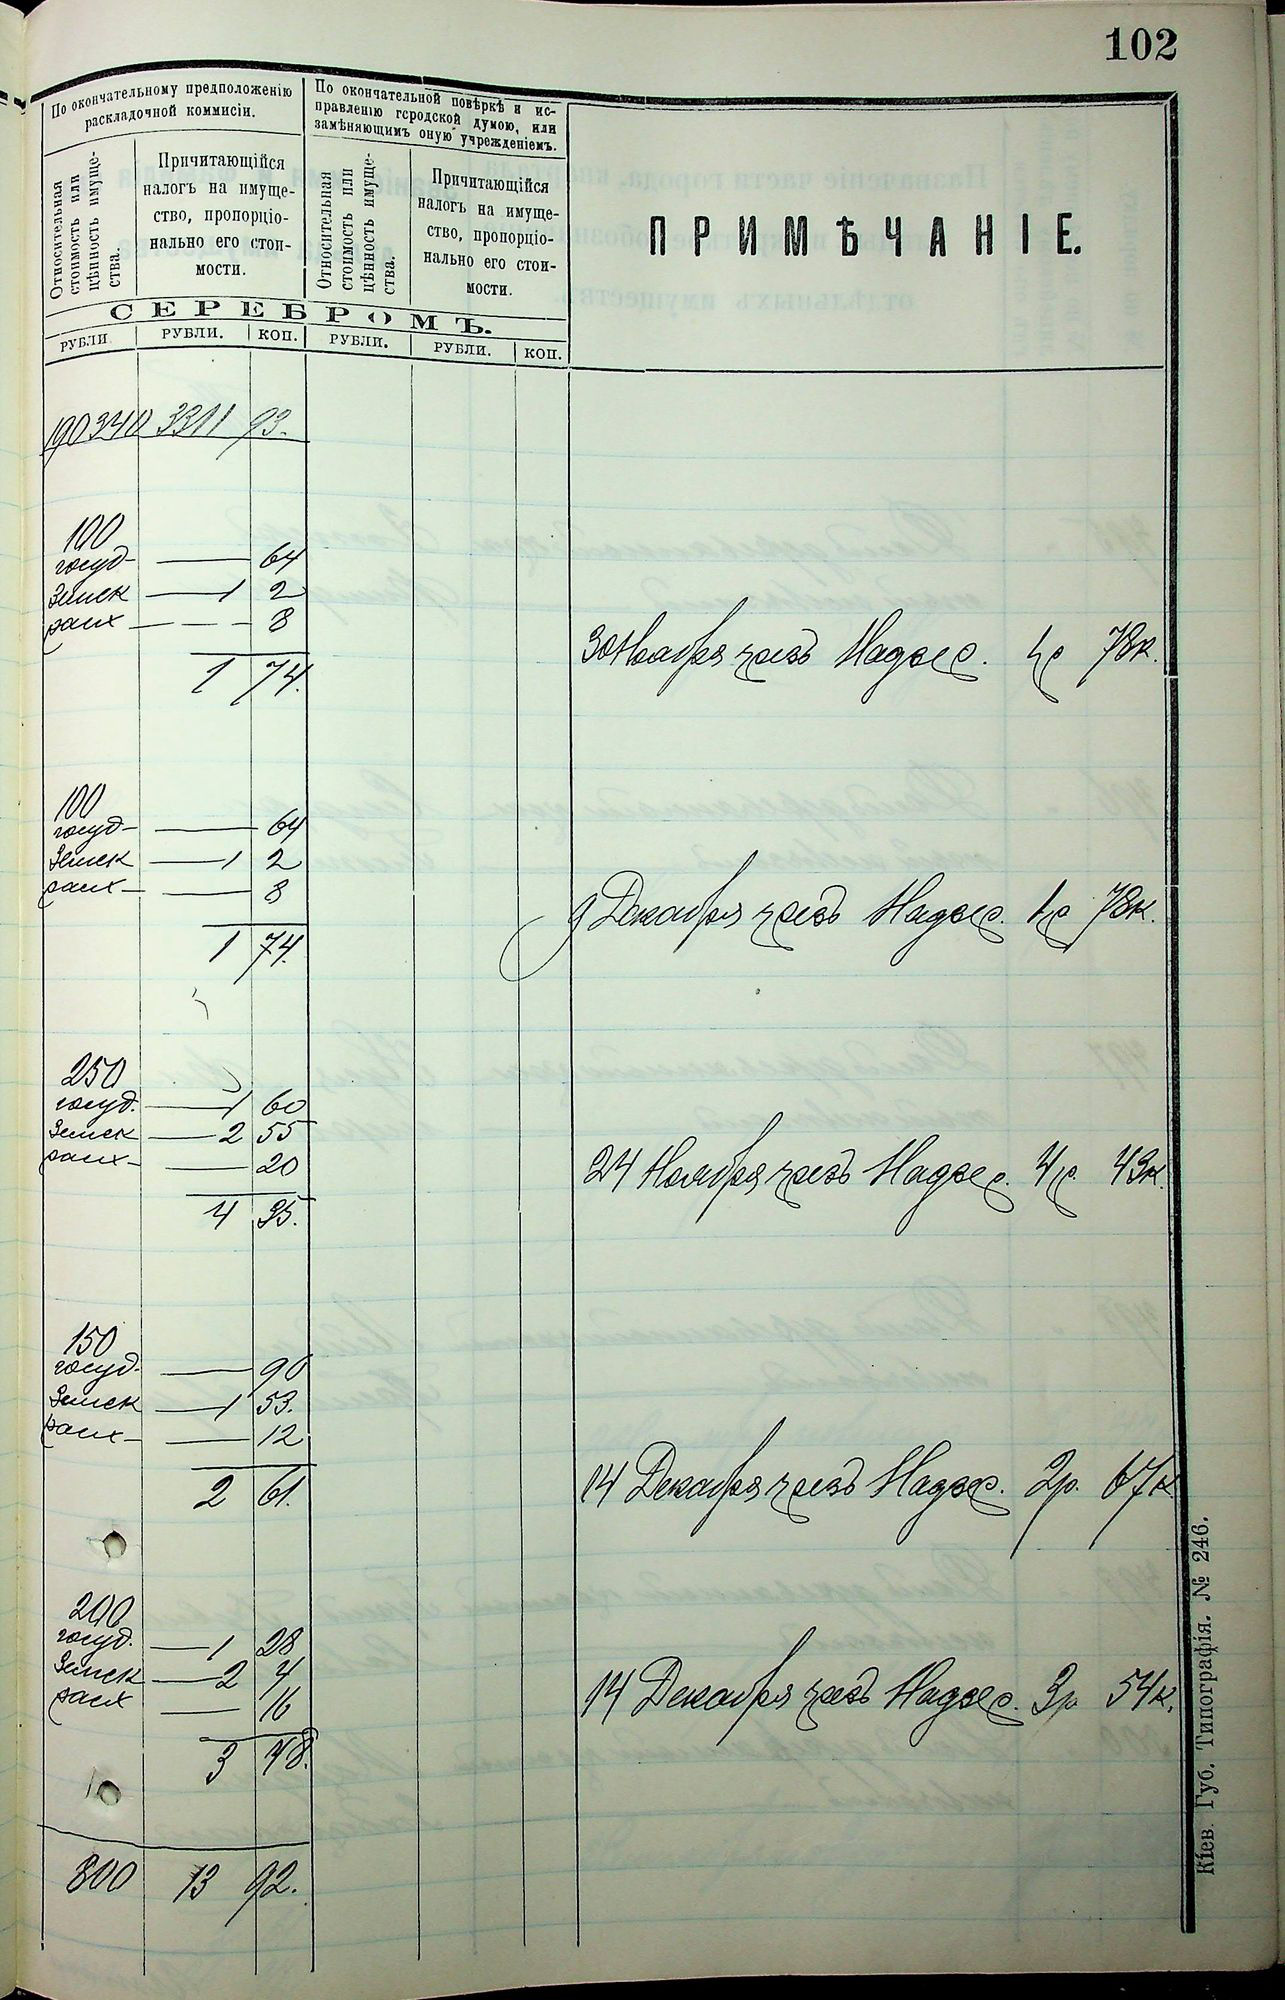 102
По окончательному предположенію
раскладочной коммисіи.
По окончательной повѣркѣ и ис-
правленію городской думою, или
замѣняющимъ оную учрежденіемъ.
Относительная
стоимость или
цѣнность имуще-
ства.
Причитающійся
налогъ на имуще-
ство, пропорціо-
нально его стои-
мости.
Относительная
стоимость или
цѣнность имуще-
ства.
Причитающійся
налогъ на имуще-
ство, пропорціо-
нально его стои-
мости.
ПРИМѢЧАНІЕ.
СЕРЕБРОМЪ.
РУБЛИ РУБЛИ. КОП. РУБЛИ. РУБЛИ. КОП.
190340 3311 93.
100
госуд- — 64
Земск — 1 2
расх — — — 8
1 74.
30 Ноября чрезъ Надзер. 1р 78к.
100
госуд- — 64
Земск — 1 2
расх — — 8
1 74.
9 Декабря чрезъ Надзер. 1р 78к.
250
госуд. — 1 60
Земск — 2 55
расх — — 20
4 35.
24 Ноября чрезъ Надзер. 4р. 43к.
150
госуд. — 90
Земск — 1 53.
расх — — 12
2 61.
14 Декабря чрезъ Надзер. 2р. 67к
200
госуд. — 1 28
Земск — 2 4
расх — 16
3 48.
14 Декабря чрезъ Надзер. 3р 54к.
800 13 92.
Кіев. Губ. Типографія. № 246.